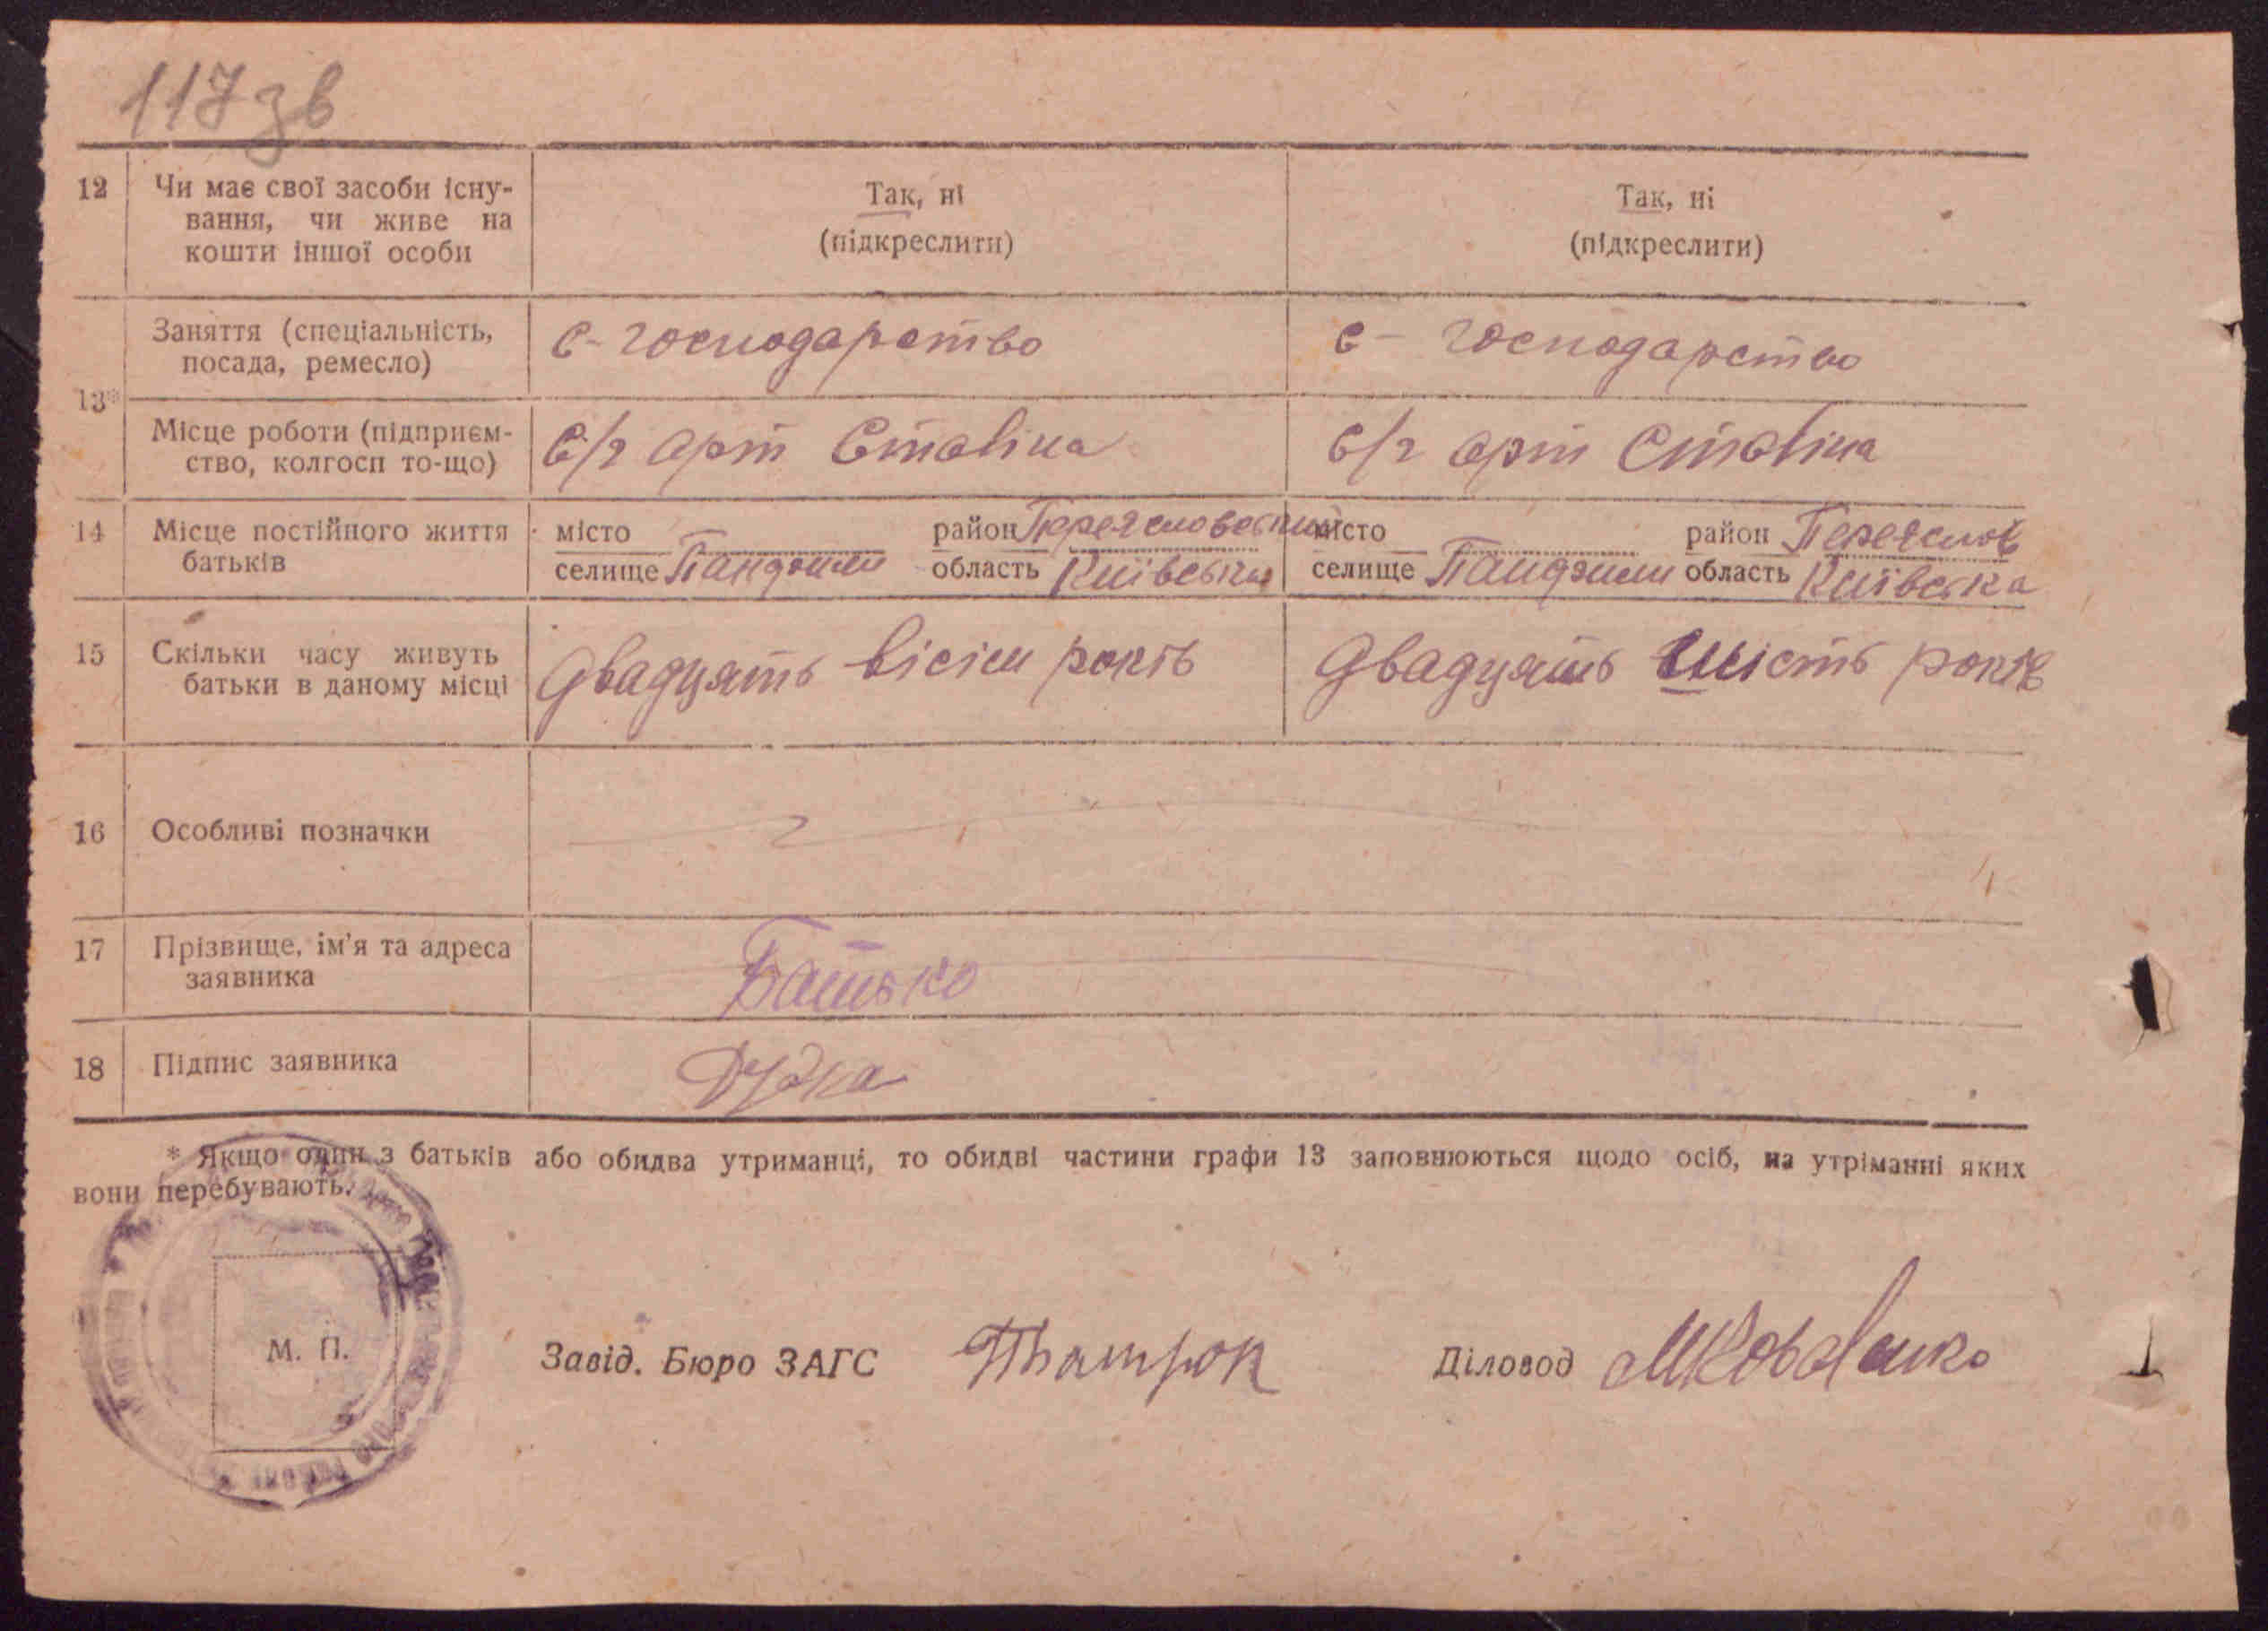 117 зв
12 Чи має свої засоби існу- Так, ні Так, ні
вання, чи живе на
кошти іншої особи (підкреслити) (підкреслити)
Заняття (спеціальність, с-господарство с- господарство
посада, ремесло)
13*
Місце роботи (підприєм- С/г арт Сталіна с/г арт Сталіна
ство, колгосп то-що)
14 Місце постійного життя місто район Переясловський місто район Переяслов
батьків селище Пандоили область Київська селище Пандоили область Київська
15 Скільки часу живуть Двадцять вісім років Двадцять шість років
батьки в даному місці
16 Особливі позначки
17 Прізвище, ім'я та адреса Батько
заявника
18 Підпис заявника Дудка
* Якщо один з батьків або обидва утриманці, то обидві частини графи 13 заповнюються щодо осіб, на утріманні яких
вони перебувають.
М. П.
Завід. Бюро ЗАГС Діловод МКоваленко